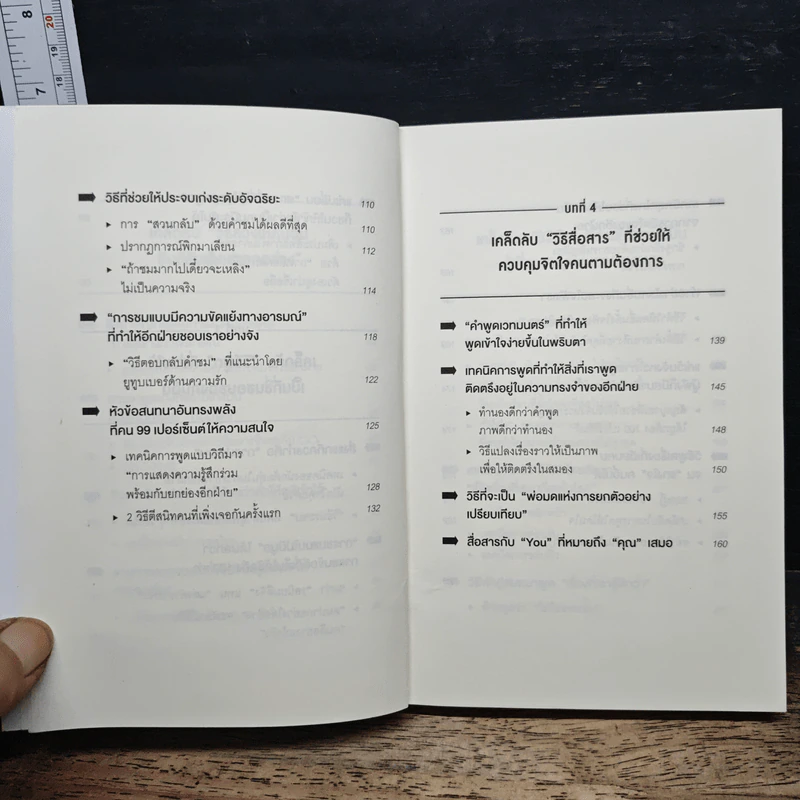 8
7
20
19
18
วิธีที่ช่วยให้ประจบเก่งระดับอัจฉริยะ 110
การ “สวนกลับ” ด้วยคำชมได้ผลดีที่สุด 110
ปรากฏการณ์พิกมาเลียน 112
“ถ้าชมมากไปเดี๋ยวจะเหลิง”
ไม่เป็นความจริง 114
“การชมแบบมีความขัดแย้งทางอารมณ์”
ที่ทำให้อีกฝ่ายชอบเราอย่างจัง 118
“วิธีตอบกลับคำชม” ที่แนะนำโดย
ยูทูบเบอร์ด้านความรัก 122
หัวข้อสนทนาอันทรงพลัง
ที่คน 99 เปอร์เซ็นต์ให้ความสนใจ 125
เทคนิคการพูดแบบวิถีมาร
“การแสดงความรู้สึกร่วม
พร้อมกับยกย่องอีกฝ่าย” 128
2 วิธีตีสนิทคนที่เพิ่งเจอกันครั้งแรก 132
บทที่ 4
เคล็ดลับ “วิธีสื่อสาร” ที่ช่วยให้
ควบคุมจิตใจคนตามต้องการ
“คำพูดเวทมนตร์” ที่ทำให้
พูดเข้าใจง่ายขึ้นในพริบตา 139
เทคนิคการพูดที่ทำให้สิ่งที่เราพูด
ติดตรึงอยู่ในความทรงจำของอีกฝ่าย 145
ทำนองดีกว่าคำพูด
ภาพดีกว่าทำนอง 148
วิธีแปลงเรื่องราวให้เป็นภาพ
เพื่อให้ติดตรึงในสมอง 150
วิธีที่จะเป็น “พ่อมดแห่งการยกตัวอย่าง
เปรียบเทียบ” 155
สื่อสารกับ “You” ที่หมายถึง “คุณ” เสมอ 160